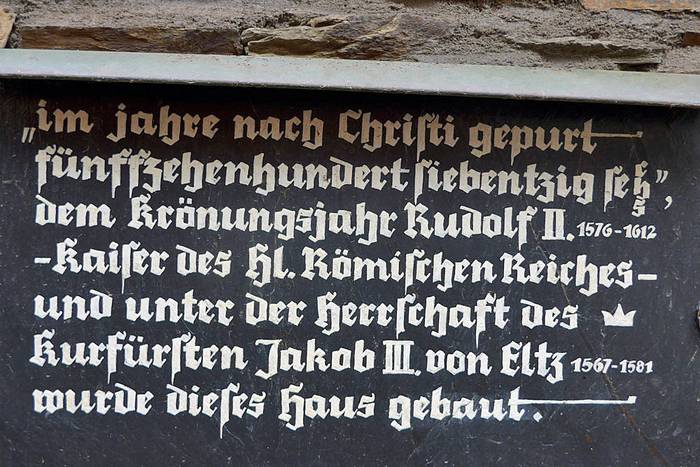 „im jahre nach Christi gepurt
fünffzehenhundert siebentzig sechs”,
dem Krönungsjahr Rudolf II. 1576-1612
-Kaiser des Hl. Römischen Reiches-
und unter der Herrschaft des
Kurfürsten Jakob III. von Eltz 1567-1581
wurde dieses Haus gebaut.